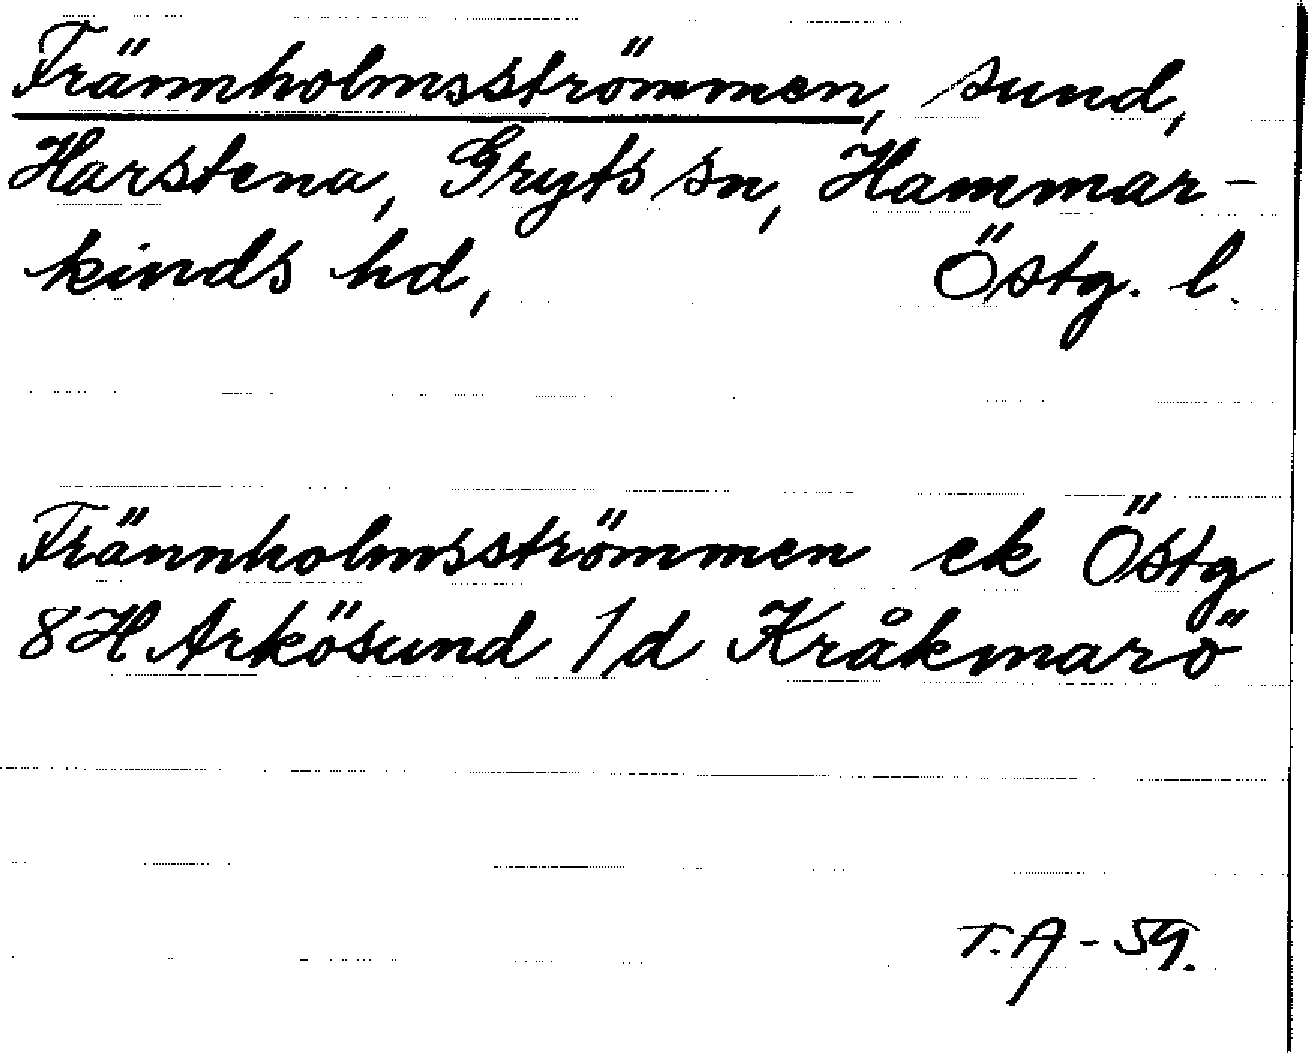 Frännholmsströmmen, sund,
Harstena, Gryts sn, Hammar-
kinds hd, Östg. l.
Frännholmsströmmen ek Östg
8H Arkösund 1d Kråkmarö
T.A-59.